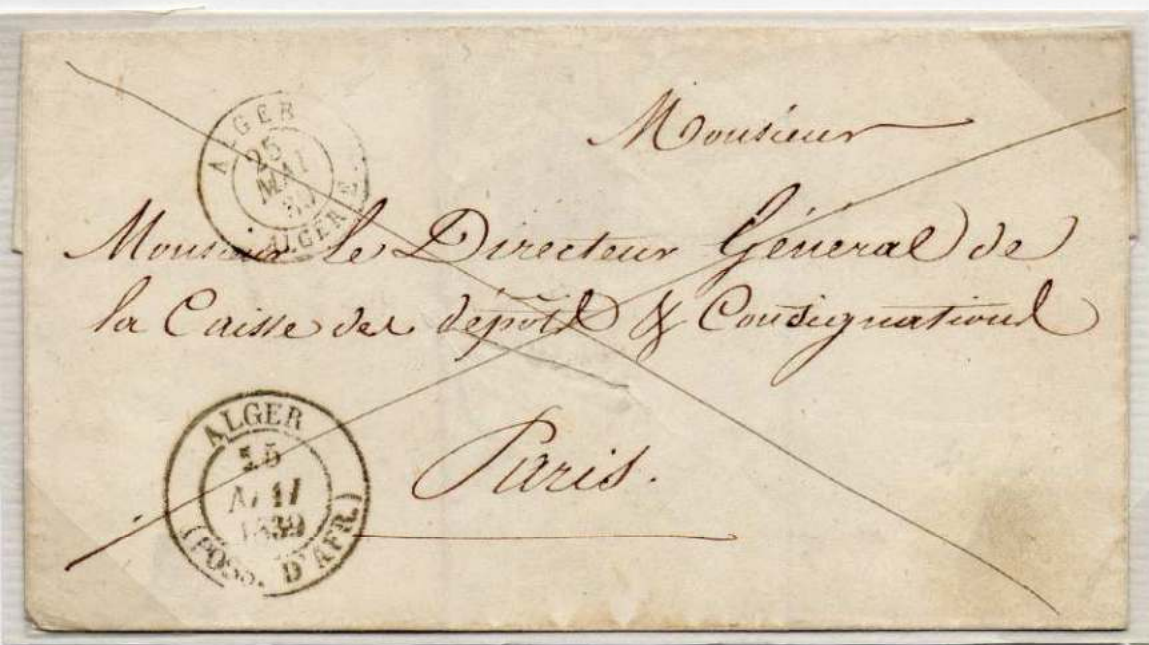 ALGER
25
MAI
ALGERIE
Monsieur
Monsieur le Directeur Général de
la Caisse des dépôts & Consignations
Paris.
ALGER
MAI
1839
(POSS. D'AFR.)